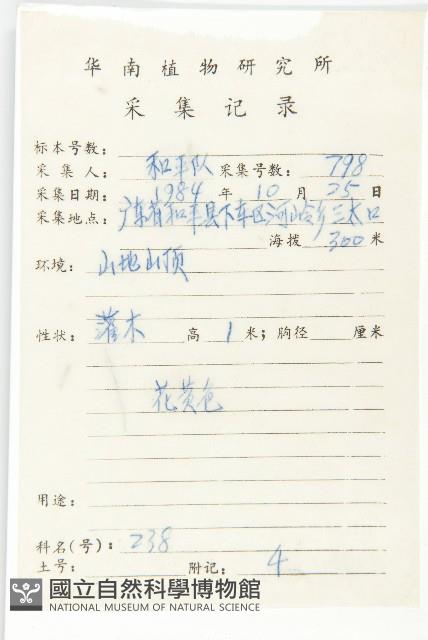 华南植物研究所
采集记录
标本号数:
采集人: 和平队 采集号数: 798
采集日期: 1984 年 10 月 25 日
采集地点: 广东省和平县下车区河岭乡三太口
海拨 300 米
环境: 山地山顶
性状: 灌木 高 1 米; 胸径 厘米
花黄色
用途:
科名(号): 238
土号: 附记: 4
國立自然科學博物館
NATIONAL MUSEUM OF NATURAL SCIENCE